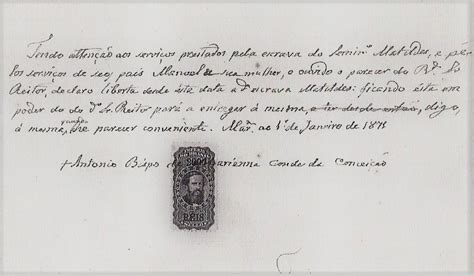 Tendo attenção aos serviços prestados pela escrava do Semin.º Matildes, e pe-
los serviços de seos pais Manoel e sua mulher, e ouvido o parecer do R.do Sr.
Reitor, declaro liberta desde esta data a d.ª escrava Matildes: ficando esta em
poder do do d.º Sr. Reitor para a entregar á mesma, e ter desde então, digo,
á mesma, quando lhe parecer conveniente. Mar.ª ao 1º de Janeiro de 1871
+ Antonio Bispo de Marianna Conde da Conceição
200
REIS